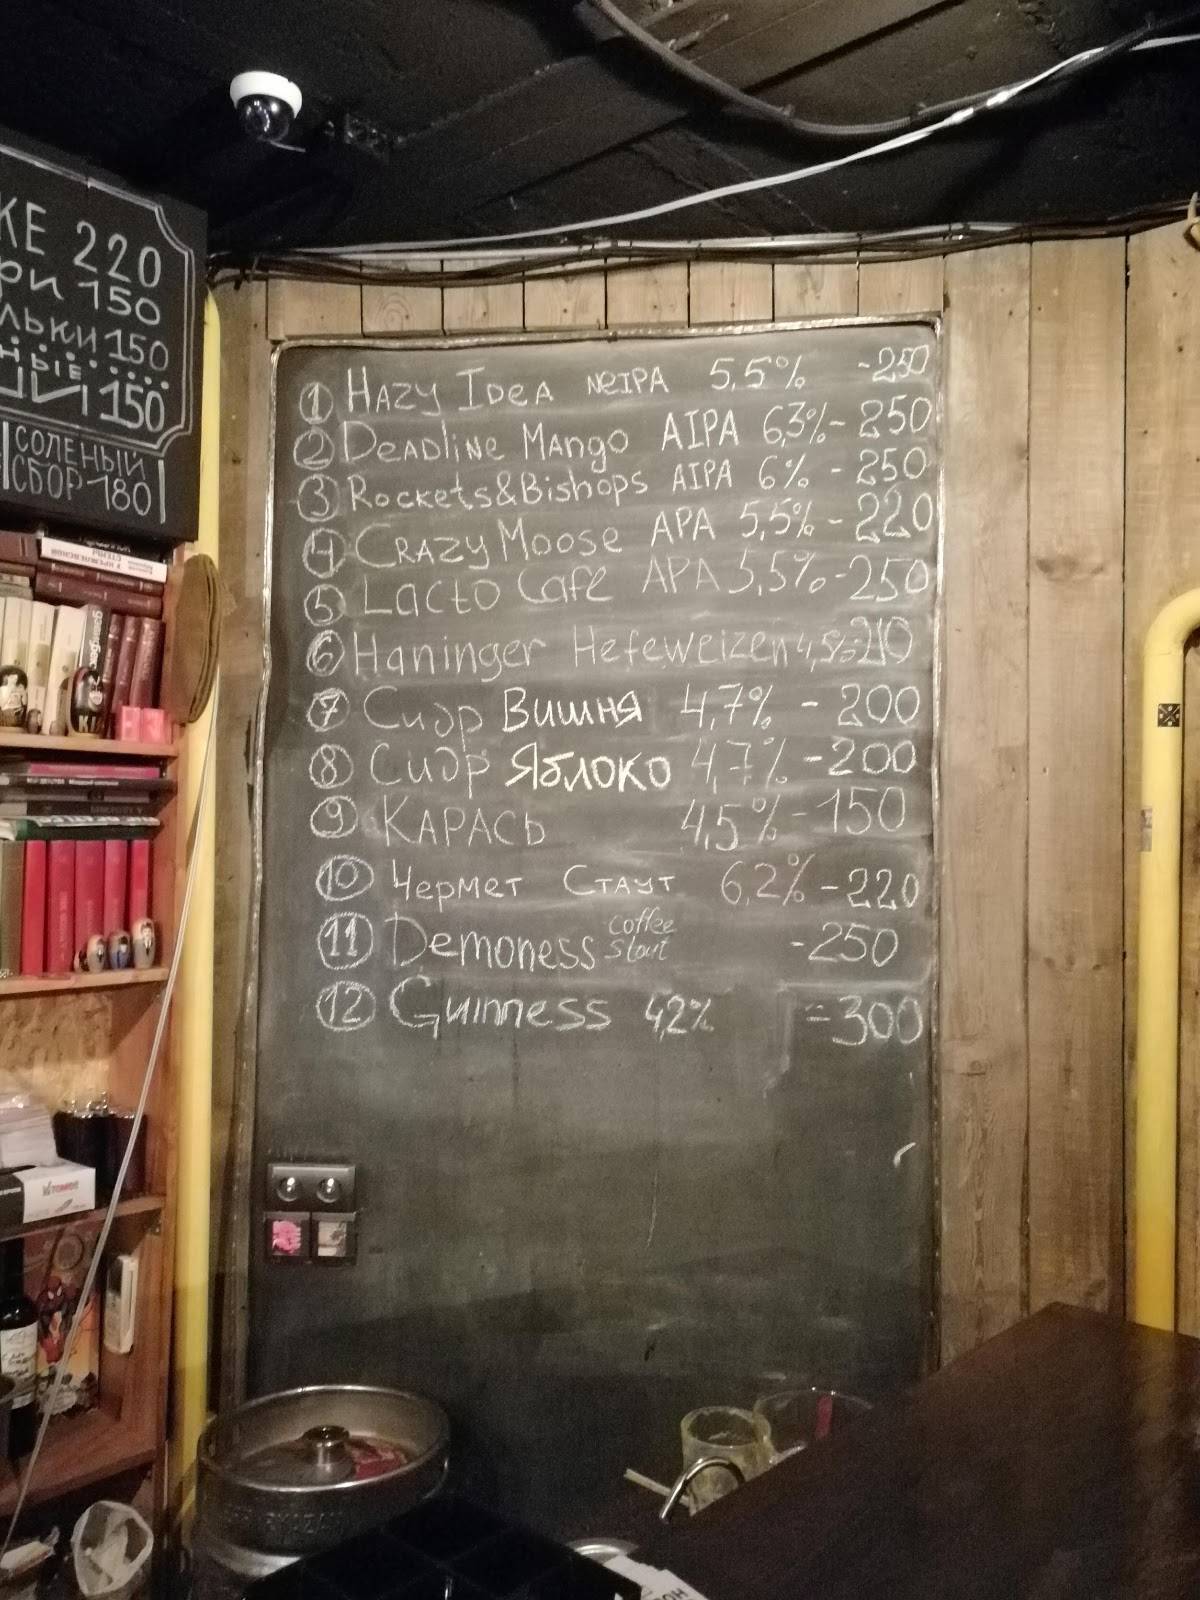 КЕ 220
РИ 150
ЛЬКИ 150
НЫЕ
150
СОЛЕНЫЙ
СБОР 180
1 Hazy Idea NEIPA 5,5% -250
2 Deadline Mango AIPA 6,3% - 250
3 Rockets&Bishops AIPA 6% - 250
4 Crazy Moose APA 5,5% - 220
5 Lacto Cafe APA 5,5% - 250
6 Haninger Hefeweizen 4,5% 210
7 Сидр Вишня 4,7% - 200
8 Сидр Яблоко 4,7% - 200
9 Карась 4,5% - 150
10 Чермет Стаут 6,2% - 220
11 Demoness coffee stout - 250
12 Guinness 4,2% = 300